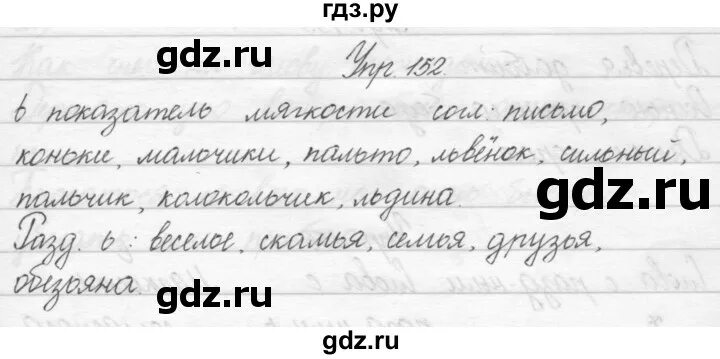 гдз.ру
Упр. 152.
ь показатель мягкости согл.: письмо,
коньки, мальчики, пальто, львёнок, сильный,
пальчик, колокольчик, льдина.
Разд. ь: веселое, скамья, семья, друзья,
обезьяна.
gdz.ru gdz.ru
gdz.ru gdz.ru
gdz.ru gdz.ru